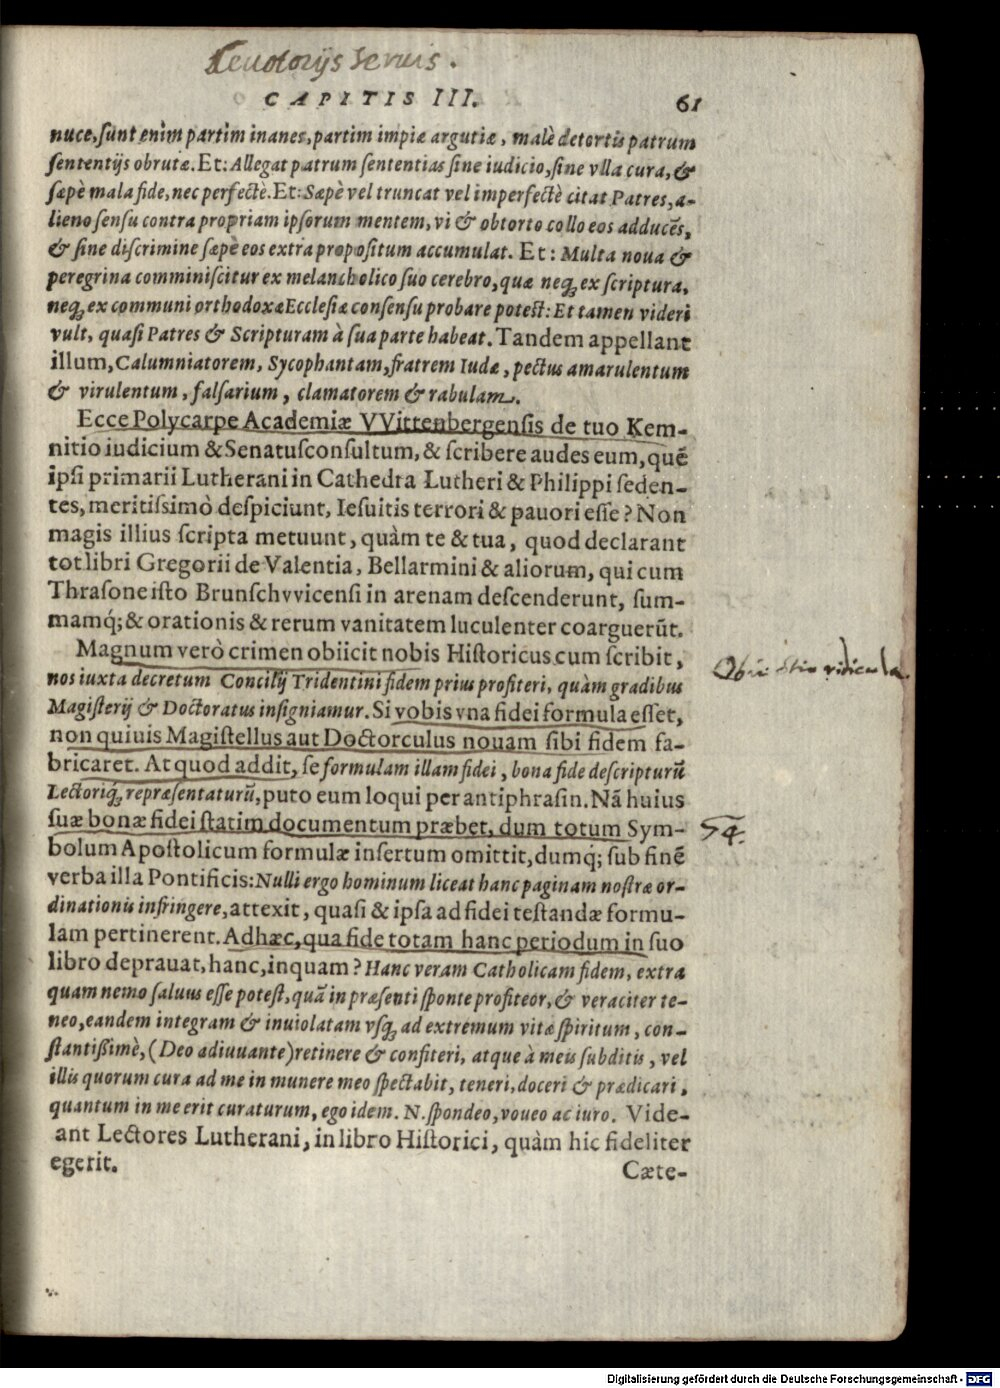 CAPITIS III. 61
nuce, ſunt enim partim inanes, partim impiæ argutiæ, malè detortis patrum
ſententijs obrutæ. Et: Allegat patrum ſententias ſine iudicio, ſine vlla cura, &
ſæpè mala fide, nec perfectè. Et: Sæpè vel truncat vel imperfectè citat Patres, a-
lieno ſenſu contra propriam ipſorum mentem, vi & obtorto collo eos adducẽs,
& ſine diſcrimine ſæpè eos extra propoſitum accumulat. Et: Multa noua &
peregrina comminiſcitur ex melancholico ſuo cerebro, quæ neq; ex ſcriptura,
neq; ex communi orthodoxæ Eccleſiæ conſenſu probare poteſt: Et tamen videri
vult, quaſi Patres & Scripturam à ſua parte habeat. Tandem appellant
illum, Calumniatorem, Sycophantam, fratrem Iudæ, pectus amarulentum
& virulentum, falſarium, clamatorem & rabulam.
Ecce Polycarpe Academiæ VVittenbergenſis de tuo Kem-
nitio iudicium & Senatuſconſultum, & ſcribere audes eum, quẽ
ipſi primarii Lutherani in Cathedra Lutheri & Philippi ſeden-
tes, meritiſsimò deſpiciunt, Ieſuitis terrori & pauori eſſe? Non
magis illius ſcripta metuunt, quàm te & tua, quod declarant
tot libri Gregorii de Valentia, Bellarmini & aliorum, qui cum
Thraſone iſto Brunſchvvicenſi in arenam deſcenderunt, ſum-
mamq́; & orationis & rerum vanitatem luculenter coarguerũt.
Magnum verò crimen obiicit nobis Hiſtoricus cum ſcribit,
nos iuxta decretum Concilij Tridentini fidem prius profiteri, quàm gradibus
Magiſterij & Doctoratus inſigniamur. Si vobis vna fidei formula eſſet,
non quiuis Magiſtellus aut Doctorculus nouam ſibi fidem fa-
bricaret. At quod addit, ſe formulam illam fidei, bona fide deſcripturũ
Lectoriq́; repræſentaturũ, puto eum loqui per antiphraſin. Nã huius
ſuæ bonæ fidei ſtatim documentum præbet, dum totum Sym-
bolum Apoſtolicum formulæ inſertum omittit, dumq́; ſub finẽ
verba illa Pontificis: Nulli ergo hominum liceat hanc paginam noſtræ or-
dinationis infringere, attexit, quaſi & ipſa ad fidei teſtandæ formu-
lam pertinerent. Ad hæc, qua fide totam hanc periodum in ſuo
libro deprauat, hanc, inquam? Hanc veram Catholicam fidem, extra
quam nemo ſaluus eſſe poteſt, quã in præſenti ſponte profiteor, & veraciter te-
neo, eandem integram & inuiolatam vſq; ad extremum vitæ ſpiritum, con-
ſtantißimè, (Deo adiuuante) retinere & confiteri, atque à meis ſubditis, vel
illis quorum cura ad me in munere meo ſpectabit, teneri, doceri & prædicari,
quantum in me erit curaturum, ego idem. N. ſpondeo, voueo ac iuro. Vide-
ant Lectores Lutherani, in libro Hiſtorici, quàm hic fideliter
egerit.
Cæte-
ridicula
Digitalisierung gefördert durch die Deutsche Forschungsgemeinschaft - DFG